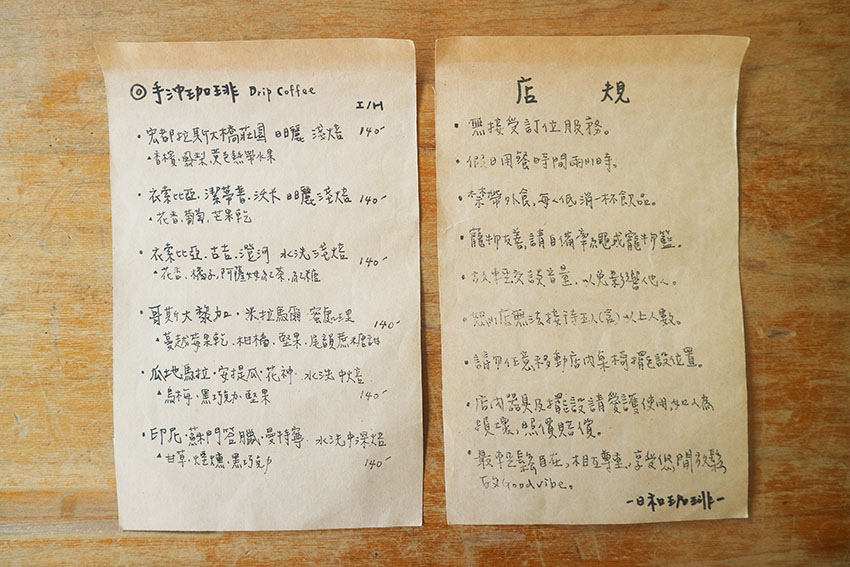 ◎手沖珈琲 Drip Coffee
I/H
・宏都拉斯大橋莊園 日曬 淺焙 140-
▲香檳、鳳梨、黃色熱帶水果
・衣索比亞．潔蒂普．沃卡 日曬 淺焙 140-
▲花香、葡萄、芒果乾
・衣索比亞．古吉．澄河 水洗 淺焙 140-
▲花香、橘子、阿薩姆紅茶
・哥斯大黎加．米拉馬爾 蜜處理 140-
▲蔓越莓果乾．柑橘．堅果．尾韻蔗糖甜
・瓜地馬拉．安提瓜．花神．水洗 中焙
▲烏梅．黑巧克力．堅果 140-
・印尼．蘇門答臘．曼特寧 水洗 中深焙
▲甘草．煙燻．黑巧克力 140-
店規
・無接受訂位服務。
・假日用餐時間兩小時。
・禁帶外食，每人低消一杯飲品。
・寵物友善，請自備牽繩或寵物籃。
・放輕交談音量，以免影響他人。
・恕小店無法接待五人(含)以上人數。
・請勿任意移動店內桌椅擺設位置。
・店內器具及擺設請愛護使用，如人為
損壞，照價賠償。
・最後鬆自在，相互尊重，享受悠閒放鬆
Good vibe。
-日和珈琲-